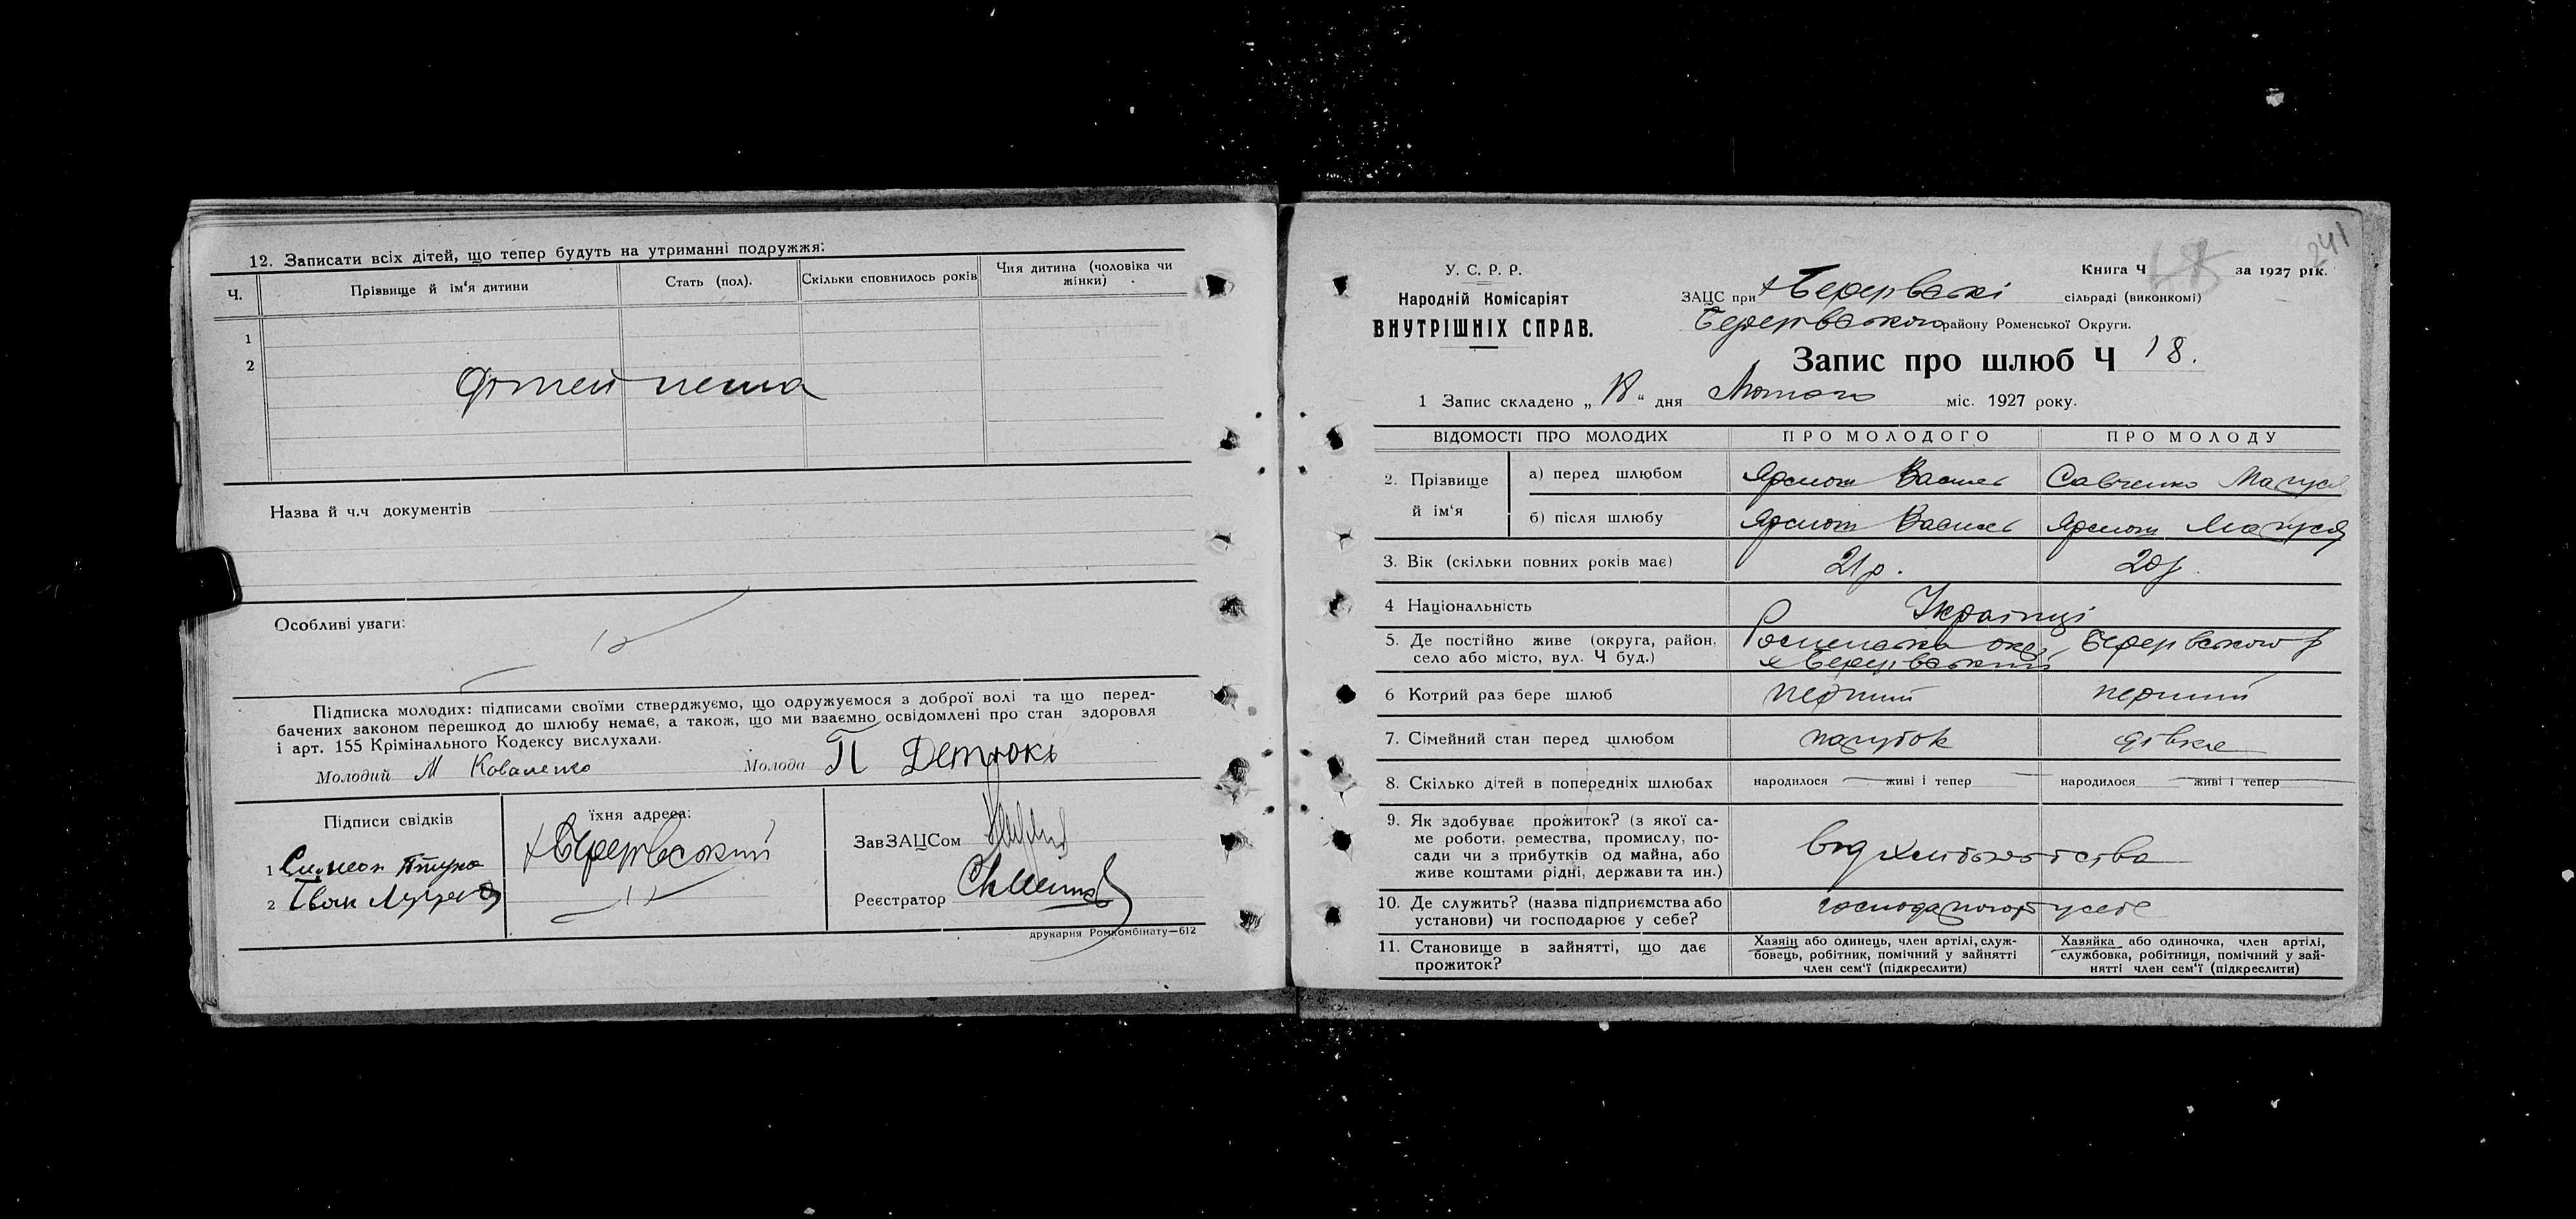 12. Записати всіх дітей, що тепер будуть на утриманні подружжя:
Ч. Прізвище й ім‘я дитини Стать (пол). Скільки сповнилось років Чия дитина (чоловіка чи жінки)
1
2
Дітей нема
Назва й ч.ч документів
Особливі уваги:
Підписка молодих: підписами своїми стверджуємо, що одружуємося з доброї волі та що перед-
бачених законом перешкод до шлюбу немає, а також, що ми взаємно освідомлені про стан здоровля
і арт. 155 Крімінального Кодексу вислухали.
Молодий М Коваленко Молода П
Підписи свідків їхня адреса:
ЗавЗАЦСом
1 Симеон
2 Іван
Реєстратор
друкарня Ромкомбінату—612
241
У. С. Р. Р.
Народній Комісаріят
ВНУТРІШНІХ СПРАВ.
Книга Ч за 1927 рік.
ЗАЦС при сільраді (виконкомі)
району Роменської Округи.
Запис про шлюб Ч 18.
1 Запис складено „ 18 “ дня Лютого міс. 1927 року.
ВІДОМОСТІ ПРО МОЛОДИХ ПРО МОЛОДОГО ПРО МОЛОДУ
2. Прізвище й ім‘я а) перед шлюбом Василь Савченко Маруся
б) після шлюбу Василь Маруся
3. Вік (скільки повних років має) 21 р. 20 р.
4 Національність Українці
5. Де постійно живе (округа, район, село або місто, вул. Ч буд.) Роменська окр.
6 Котрий раз бере шлюб перший перший
7. Сімейний стан перед шлюбом парубок дівка
8. Скілько дітей в попередніх шлюбах народилося живі і тепер народилося живі і тепер
9. Як здобуває прожиток? (з якої са-
ме роботи, ремества, промислу, по-
сади чи з прибутків од майна, або
живе коштами рідні, держави та ин.)
від хліборобства
10. Де служить? (назва підприємства або
установи) чи господарює у себе?
у себе
11. Становище в зайнятті, що дає
прожиток?
Хазяін або одинець, член артілі, служ-
бовець, робітник, помічний у зайнятті
член сем‘ї (підкреслити)
Хазяйка або одиночка, член артілі,
службовка, робітниця, помічний у зай-
нятті член сем‘ї (підкреслити)